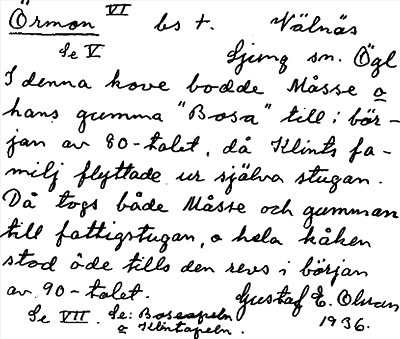 Örmon VI bs t. Välnäs
Se V Ljung sn. Ögl
I denna kove bodde Måsse o
hans gumma "Bosa" till i bör-
jan av 80-talet, då Klints fa-
milj flyttade ur själva stugan.
Då togs både Måsse och gumman
till fattigstugan, o hela kåken
stod öde tills den revs i början
av 90-talet. Gustaf E. Olsson
Se VII. Se: Boseapeln 1936.
o Klintapeln.